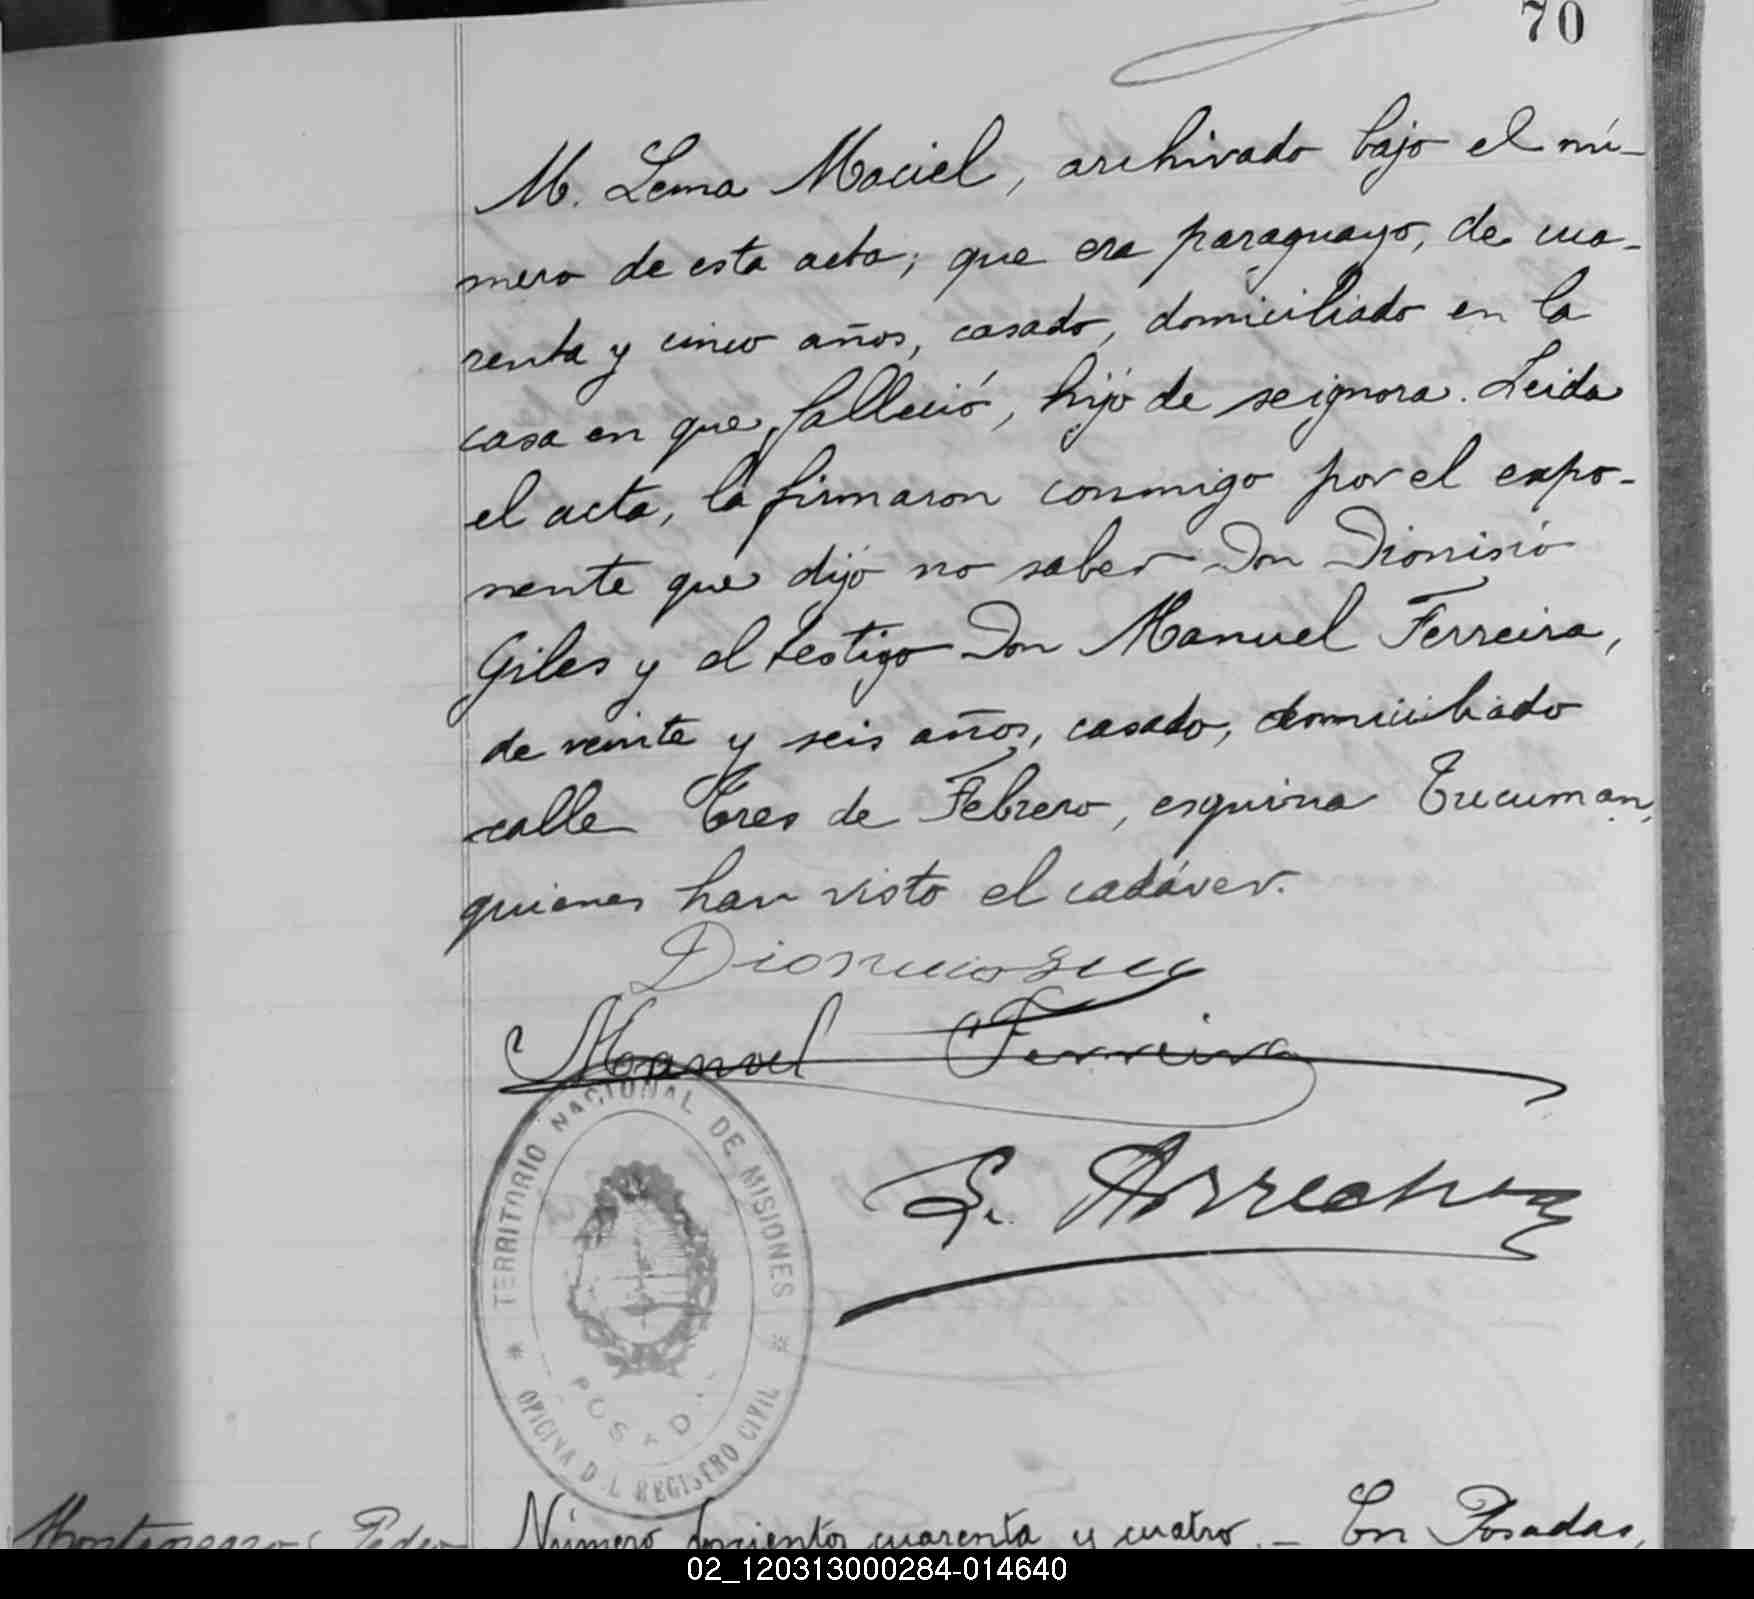 70
M. Lema Maciel, archivado bajo el nú-
mero de esta acta; que era paraguayo, de cua-
renta y cinco años, casado, domiciliado en la
casa en que falleció, hijo de se ignora. Leida
el acta, la firmaron conmigo por el expo-
nente que dijo no saber Don Dionisio
Giles y el testigo Don Manuel Ferreira,
de veinte y seis años, casado, domiciliado
calle Tres de Febrero, esquina Tucuman,
quienes han visto el cadáver.
Manuel Ferreira
TERRITORIO NACIONAL DE MISIONES
POSAD
OFICINA D L REGISTRO CIVIL
Montenegro, Pedro
Número doscientos cuarenta y cuatro. - En Posadas,
02_120313000284-014640